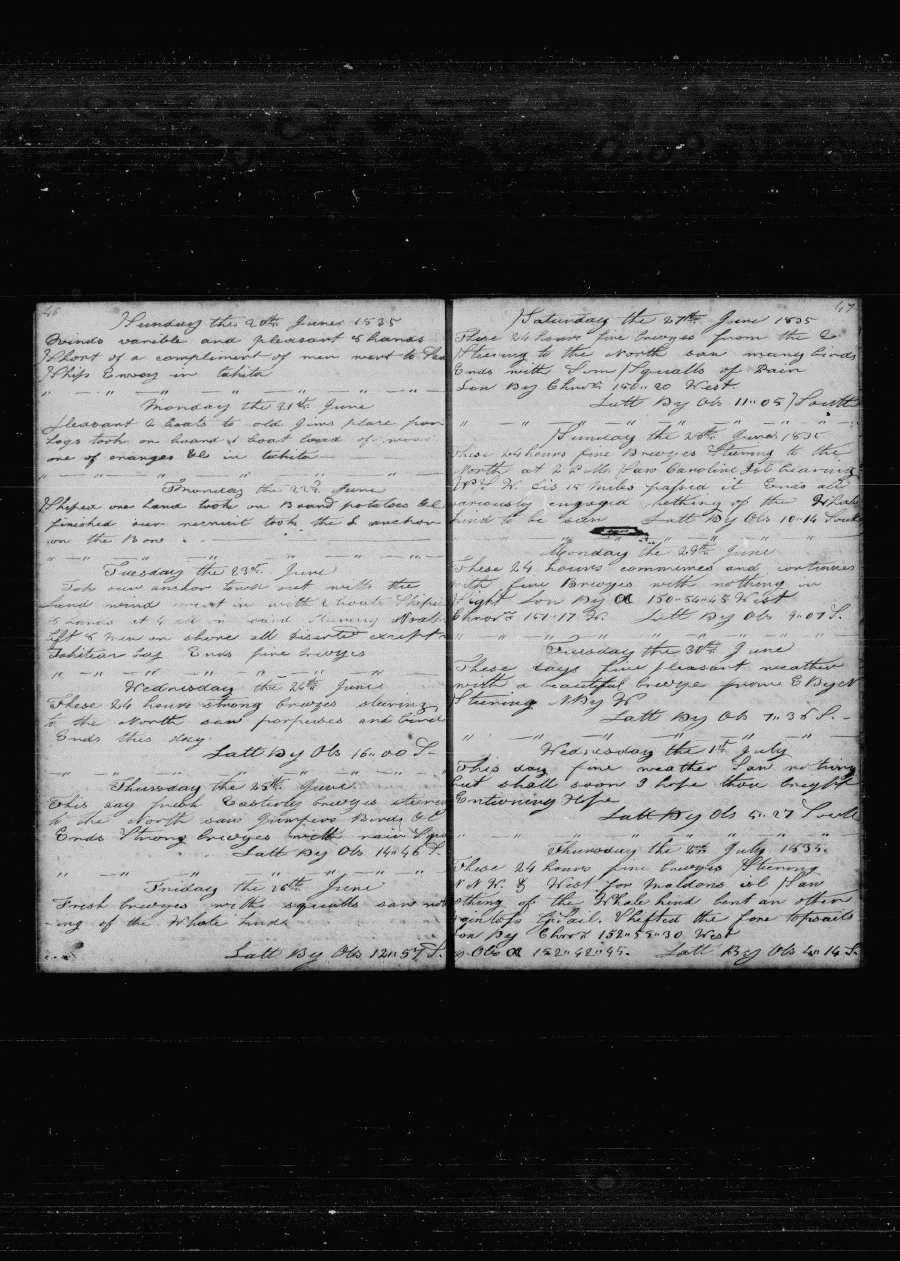 46
Sunday the 20th June 1835
Winds varible and pleasant 5 hands
Short of a compliment of men went to Sea
Ship Envoy in tahita
Monday the 21st June
pleasant 2 boats to old Jims place for
Logs took on board 1 boat load of wood
one of oranges &c in tahita
the 22d June
Shiped one hand took on Board potatoes &c
finished our recruit took the anchor
on the Bow
Tuesday the 23d June
our anchor out with the
Land wind went in with 2 boats Shiped
5 hands at 4
left 5 men on shore all Deserted except
Ends fine breezes
Wednesday the 24th June
These 24 hours strong breezes steering
to the North saw porpuses and
Ends this day
Latt By Obs 16"00 S.
Thursday the 25th June
This day fresh Easterly breezes steering
to the North saw Grampuss Birds &C
Ends Strong breezes with rain
Latt By Obs 14"46 S.
Friday the 26th June
Fresh breezes with squalls saw noth
-ing of the Whale kind
Latt By Obs 12"57 S.
47
Saturday the 27th June 1835
These 24 hours fine breezes from the E
Steering to the North saw many birds
Ends with Som Squalls of Rain
Lon By Chro: 150"20 West
Latt By Obs 11"05 South
Sunday the 28th June 1835
These 24 hours fine Breezes Steering to the
North at 2 P.M. Saw Caroline Isl bearing
W.S.W. Dis 15 miles passed it Ends all
variously engaged nothing of the Whale
kind to be seen Latt By Obs 10"14 South
Monday the 29th June
These 24 hours commences and continues
with fine Breezes with nothing in
sight Lon By 150"54"45 West
Chro: 151"17 W. Latt By Obs 9"07 S.
Tuesday the 30th June
These days fine pleasant weather
with a beautiful breeze from E By N
Steering N By W
Latt By Ob 7"36 S.
Wednesday the 1st July
This day fine weather Saw nothing
but shall soon I hope thou bright
Entioning Hope
Latt By Obs 5"27 South
Thursday the 2nd July 1835
These 24 hours fine breezes Steering
N N W. & West for Maldons isl Saw
nothing of the Whale kind bent an other
Shifted the fore topsails
Lon By Chro: 152"55"30 West
Obs 152"42"45. Latt By Obs 4"14 S.